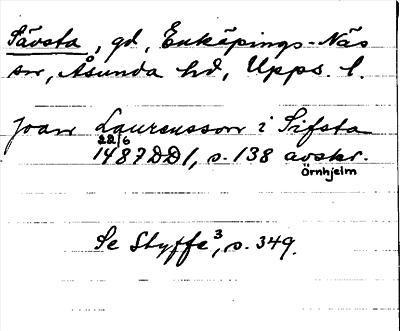 Sävsta, gd, Enköpings-Näs
sn, Åsunda hd, Upps. l.
Joan Laurensson i Sifsta
22/6
1487 DD1, s. 138 avskr.
Örnhjelm
Se Styffe³, s. 349.